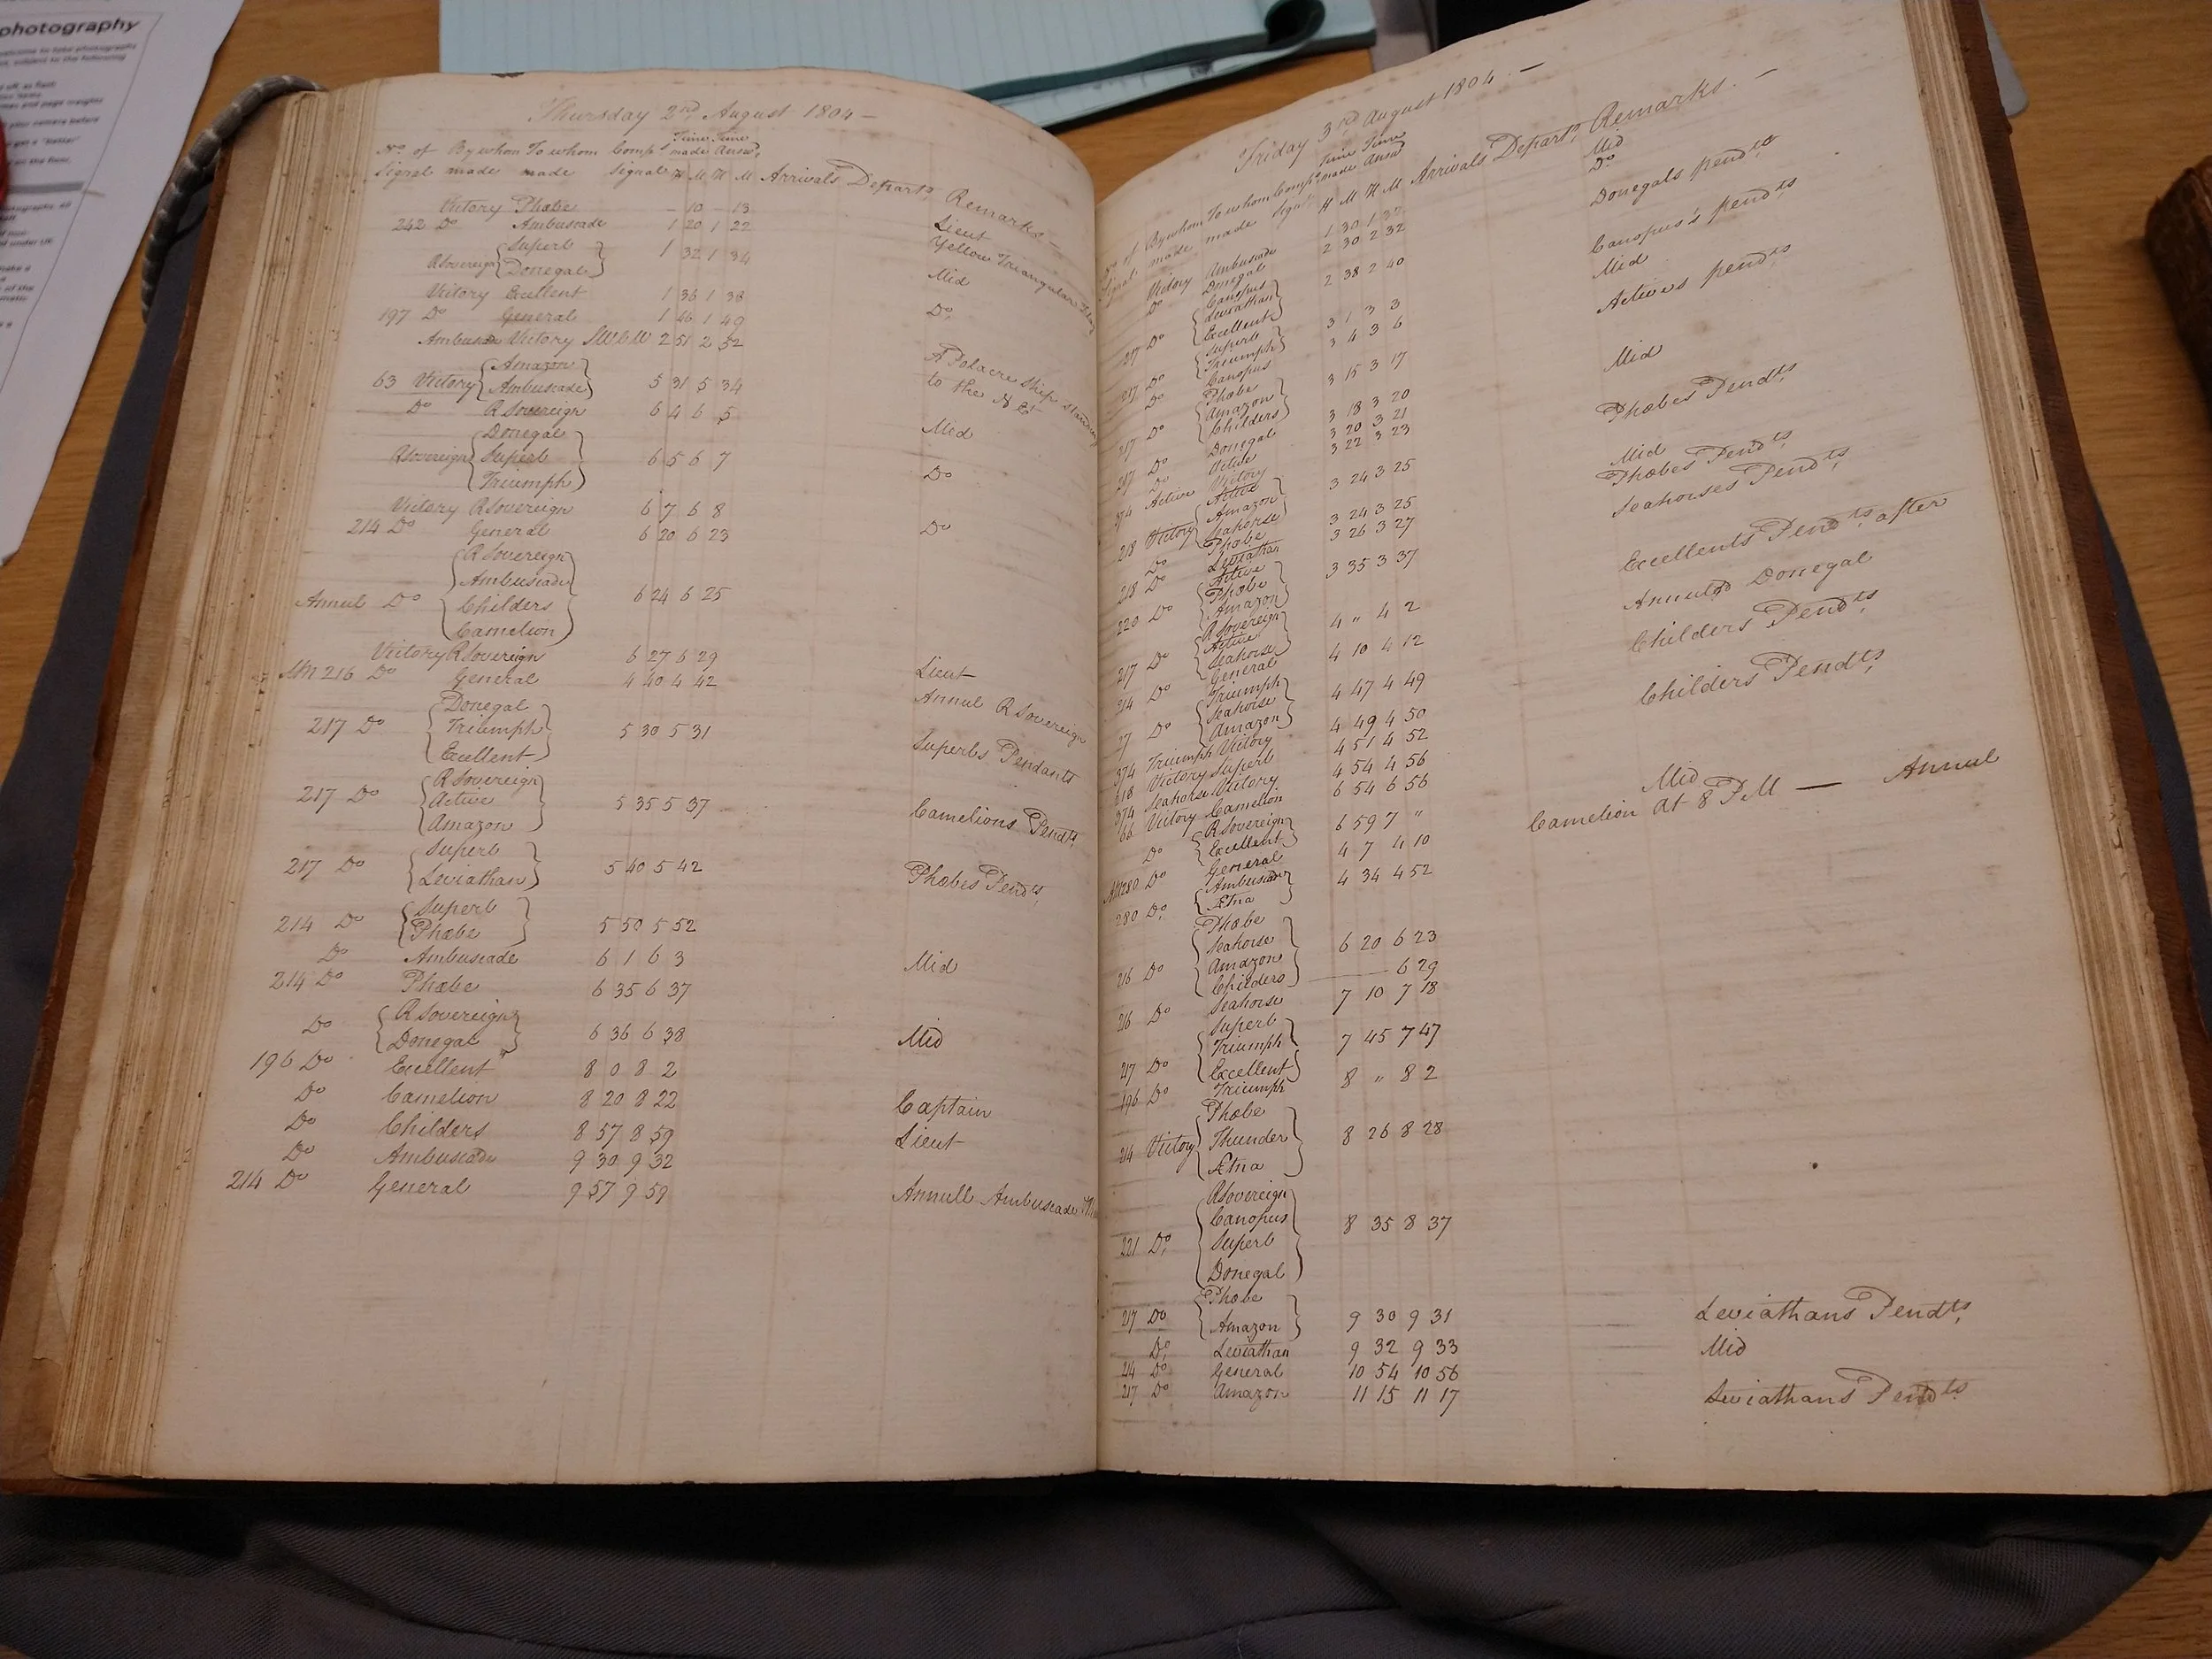 photography
Thursday 2nd August 1804 —
No. of By whom To whom Comps Time Time
Signal made made Signal made Answd
H M H M Arrivals Departs Remarks —
Victory Phœbe — 10 — 13
242 Do Ambuscade 1 20 1 22 Lieut
RSovereign {Superb Donegal} 1 32 1 34 Yellow Triangular Flag
Victory Excellent 1 36 1 38 Mid
197 Do General 1 46 1 49 Do
Ambuscade Victory SWbW 2 51 2 52
63 Victory {Amazon Ambuscade} 5 31 5 34 A Polacre Ship standing to the NEt
Do RSovereign 6 4 6 5 Mid
RSovereign {Donegal Superb Triumph} 6 5 6 7 Do
Victory RSovereign 6 7 6 8
214 Do General 6 20 6 23 Do
Annul Do {RSovereign Ambuscade Childers Camelion} 6 24 6 25
Victory RSovereign 6 27 6 29 Lieut
216 Do General 4 40 4 42 Annul RSovereign
217 Do {Donegal Triumph Excellent} 5 30 5 31 Superbs Pendants
217 Do {RSovereign Active Amazon} 5 35 5 37 Camelions Pendts
217 Do {Superb Leviathan} 5 40 5 42 Phœbes Pendts
214 Do {Superb Phœbe} 5 50 5 52
Do Ambuscade 6 1 6 3 Mid
214 Do Phœbe 6 35 6 37
Do {RSovereign Donegal} 6 36 6 38 Mid
196 Do Excellent 8 0 8 2
Do Camelion 8 20 8 22 Captain
Do Childers 8 57 8 59 Lieut
Do Ambuscade 9 30 9 32
214 Do General 9 57 9 59 Annull Ambuscade
Friday 3rd August 1804 —
No. of By whom To whom Comps Time Time
Signal made made Signl made Answd
H M H M Arrivals Departs Remarks —
Victory Ambuscade 1 30 1 32 Mid
Do Donegal 2 30 2 32 Do
217 Do {Canopus Leviathan Excellent} 2 38 2 40 Donegals pendts
217 Do {Superb Triumph} 3 1 3 3 Canopus's pendts
Do Canopus 3 4 3 6 Mid
217 Do {Phœbe Amazon Childers} 3 15 3 17 Actives pendts
217 Do Donegal 3 18 3 20
Do Active 3 20 3 21 Mid
374 Active Victory 3 22 3 23
218 Victory {Active Amazon Seahorse} 3 24 3 25 Phœbes Pendts
Do Phœbe 3 24 3 25 Mid
218 Do Leviathan 3 26 3 27 Phœbes Pendts
220 Do {Active Phœbe Amazon} 3 35 3 37 Seahorses Pendts
217 Do {RSovereign Active Seahorse} 4 " 4 2 Excellents Pendts after
214 Do General 4 10 4 12 Annuled Donegal
27 Do {Triumph Seahorse Amazon} 4 47 4 49 Childers Pendts
374 Triumph Victory 4 49 4 50
218 Victory Superb 4 51 4 52 Childers Pendts
374 Seahorse Victory 4 54 4 56
66 Victory Camelion 6 54 6 56
Do {RSovereign Excellent} 6 59 7 " Mid
280 Do General 4 7 4 10 Camelion At 8 PM — Annul
280 Do {Ambuscade Ætna} 4 34 4 52
216 Do {Phœbe Seahorse Amazon Childers} 6 20 6 23
6 29
216 Do Seahorse 7 10 7 18
217 Do {Superb Triumph Excellent} 7 45 7 47
196 Do Triumph 8 " 8 2
214 Victory {Phœbe Thunder Ætna} 8 26 8 28
221 Do {RSovereign Canopus Superb Donegal} 8 35 8 37
217 Do {Phœbe Amazon} 9 30 9 31 Leviathans Pendts
Do Leviathan 9 32 9 33 Mid
214 Do General 10 54 10 56
217 Do Amazon 11 15 11 17 Leviathans Pendts